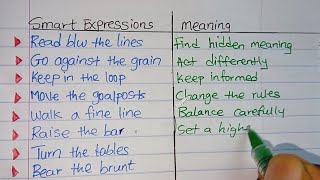 Smart Expressions Meaning
Read b/w the lines Find hidden meaning
Go against the grain Act differently
Keep in the loop Keep informed
Move the goalposts Change the rules
Walk a fine line Balance carefully
Raise the bar . Set a highe
Turn the tables
Bear the brunt